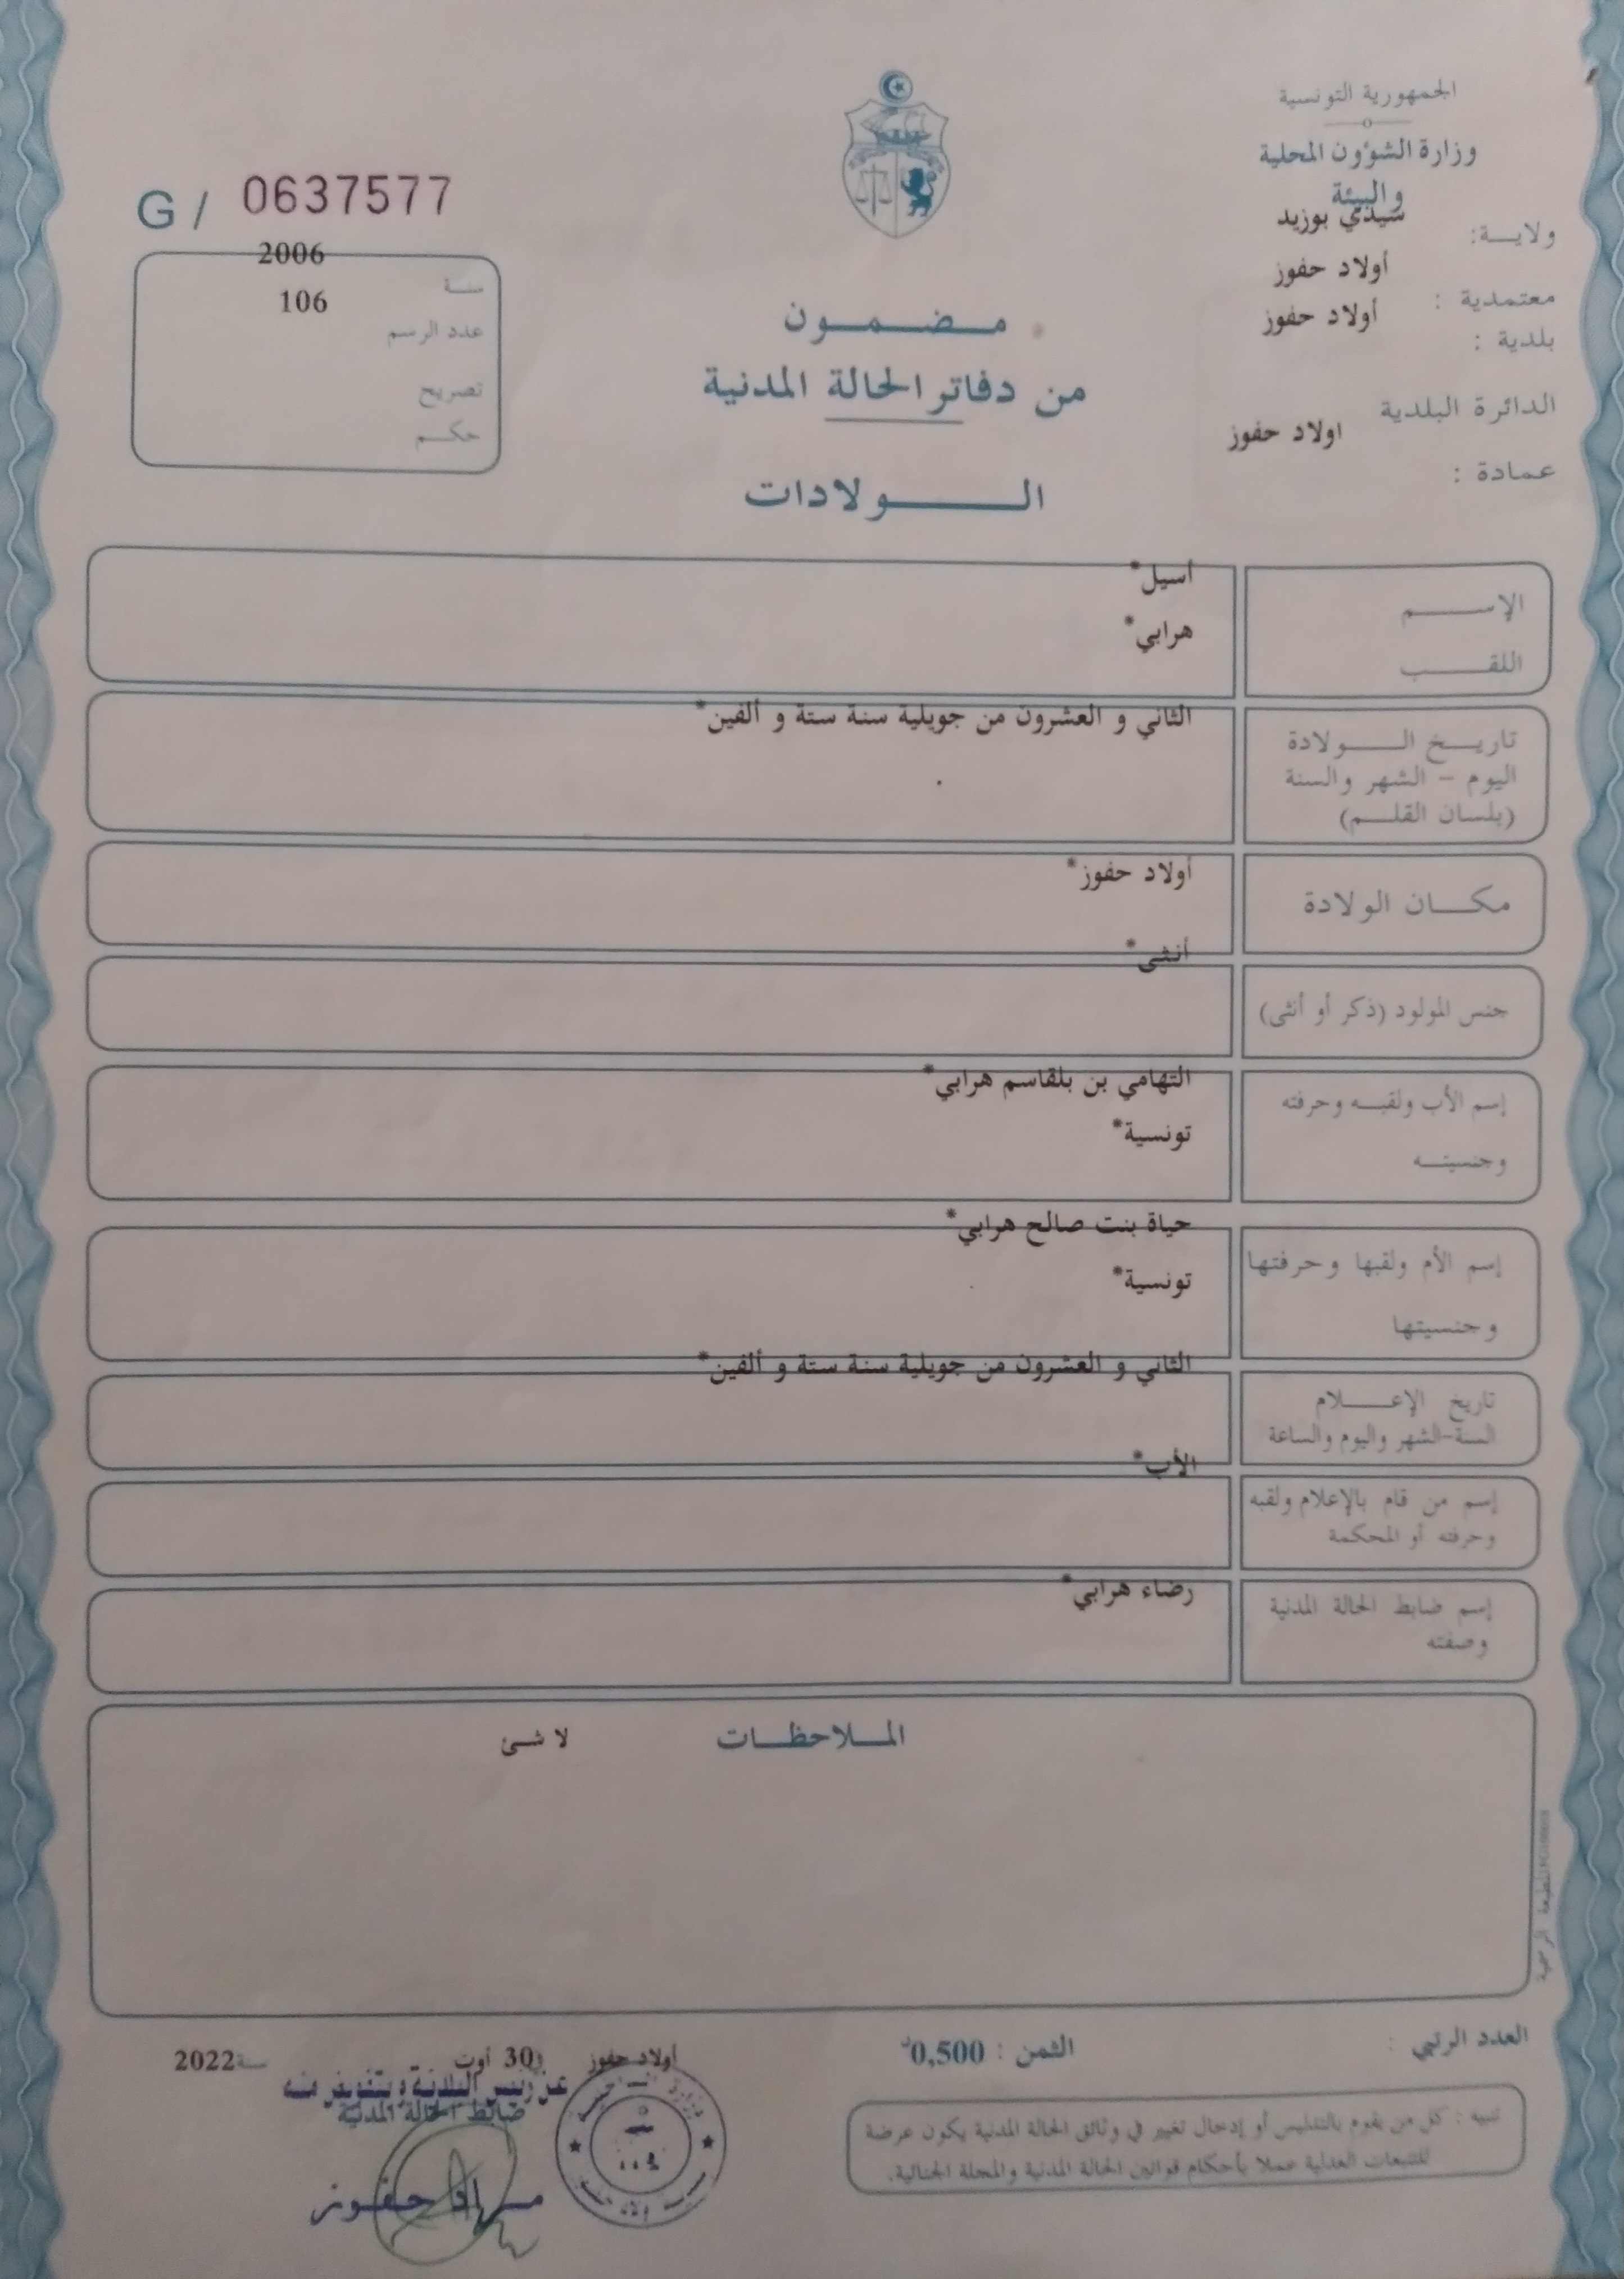 الجمهورية التونسية
وزارة الشؤون المحلية
والبيئة
ولايـــة: سيدي بوزيد
معتمدية : أولاد حفوز
بلدية : أولاد حفوز
الدائرة البلدية
اولاد حفوز
عمادة :
G / 0637577
سنة 2006
عدد الرسم 106
تصريح
حكم
مضمون
من دفاتر الحالة المدنية
الولادات
الإسم أسيل*
اللقب هرابي*
تاريخ الولادة الثاني و العشرون من جويلية سنة ستة و ألفين*
اليوم - الشهر والسنة
(بلسان القلم)
مكان الولادة أولاد حفوز*
جنس المولود (ذكر أو أنثى) أنثى*
إسم الأب ولقبه وحرفته التهامي بن بلقاسم هرابي*
وجنسيته تونسية*
إسم الأم ولقبها وحرفتها حياة بنت صالح هرابي*
وجنسيتها تونسية*
تاريخ الإعلام الثاني و العشرون من جويلية سنة ستة و ألفين*
السنة-الشهر واليوم والساعة
إسم من قام بالإعلام ولقبه الأب*
وحرفته أو المحكمة
إسم ضابط الحالة المدنية رضاء هرابي*
وصفته
الملاحظات لا شئ
المطبعة الرسمية
العدد الرتبي :
الثمن : 0,500د
أولاد حفوز في 30 أوت سنة 2022
عن رئيس البلدية وبتفويض منه
ضابط الحالة المدنية
مراد حفوز
تنبيه : كل من يقوم بالتدليس أو إدخال تغيير في وثائق الحالة المدنية يكون عرضة
للتتبعات العدلية عملا بأحكام قوانين الحالة المدنية والمجلة الجنائية.